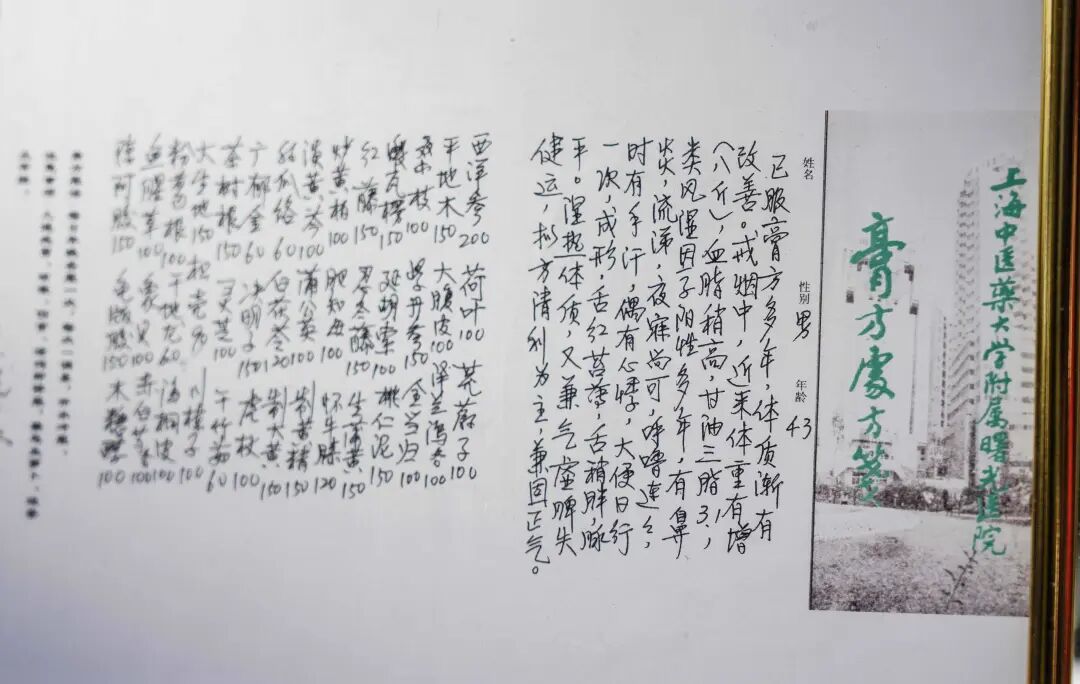 上海中医药大学附属曙光医院
膏方处方笺
姓名
性别 男
年龄 43
已服膏方多年，体质渐有
改善。戒烟中，近来体重有增
（八斤），血脂稍高，甘油三脂3.1，
类风湿因子阳性多年，有鼻
炎，流涕，夜寐尚可，呼噜连々，
时有手汗，偶有心悸，大便日行
一次，成形，舌红苔薄，舌稍胖，脉
平。湿热体质，又兼气虚脾失
健运，拟方清利为主，兼固正气。
西洋参200 荷叶100 茺蔚子100
平地木150 大腹皮100 泽兰泻各100
桑枝100 紫丹参150 全当归100
瓜蒌150 延胡索100 桃仁泥150
红藤150 忍冬藤150 生蒲黄150
炒黄柏100 肥知母100 怀牛膝120
淡黄芩100 蒲公英100 制黄精150
丝瓜络60 白茯苓120 制大黄150
广郁金60 决明子150 虎杖100
茶树根150 灵芝100 千竹茹60
大生地150 川楝子100
粉葛根100 干地龙60
血
陈阿胶150 龟版胶150 木糖醇100